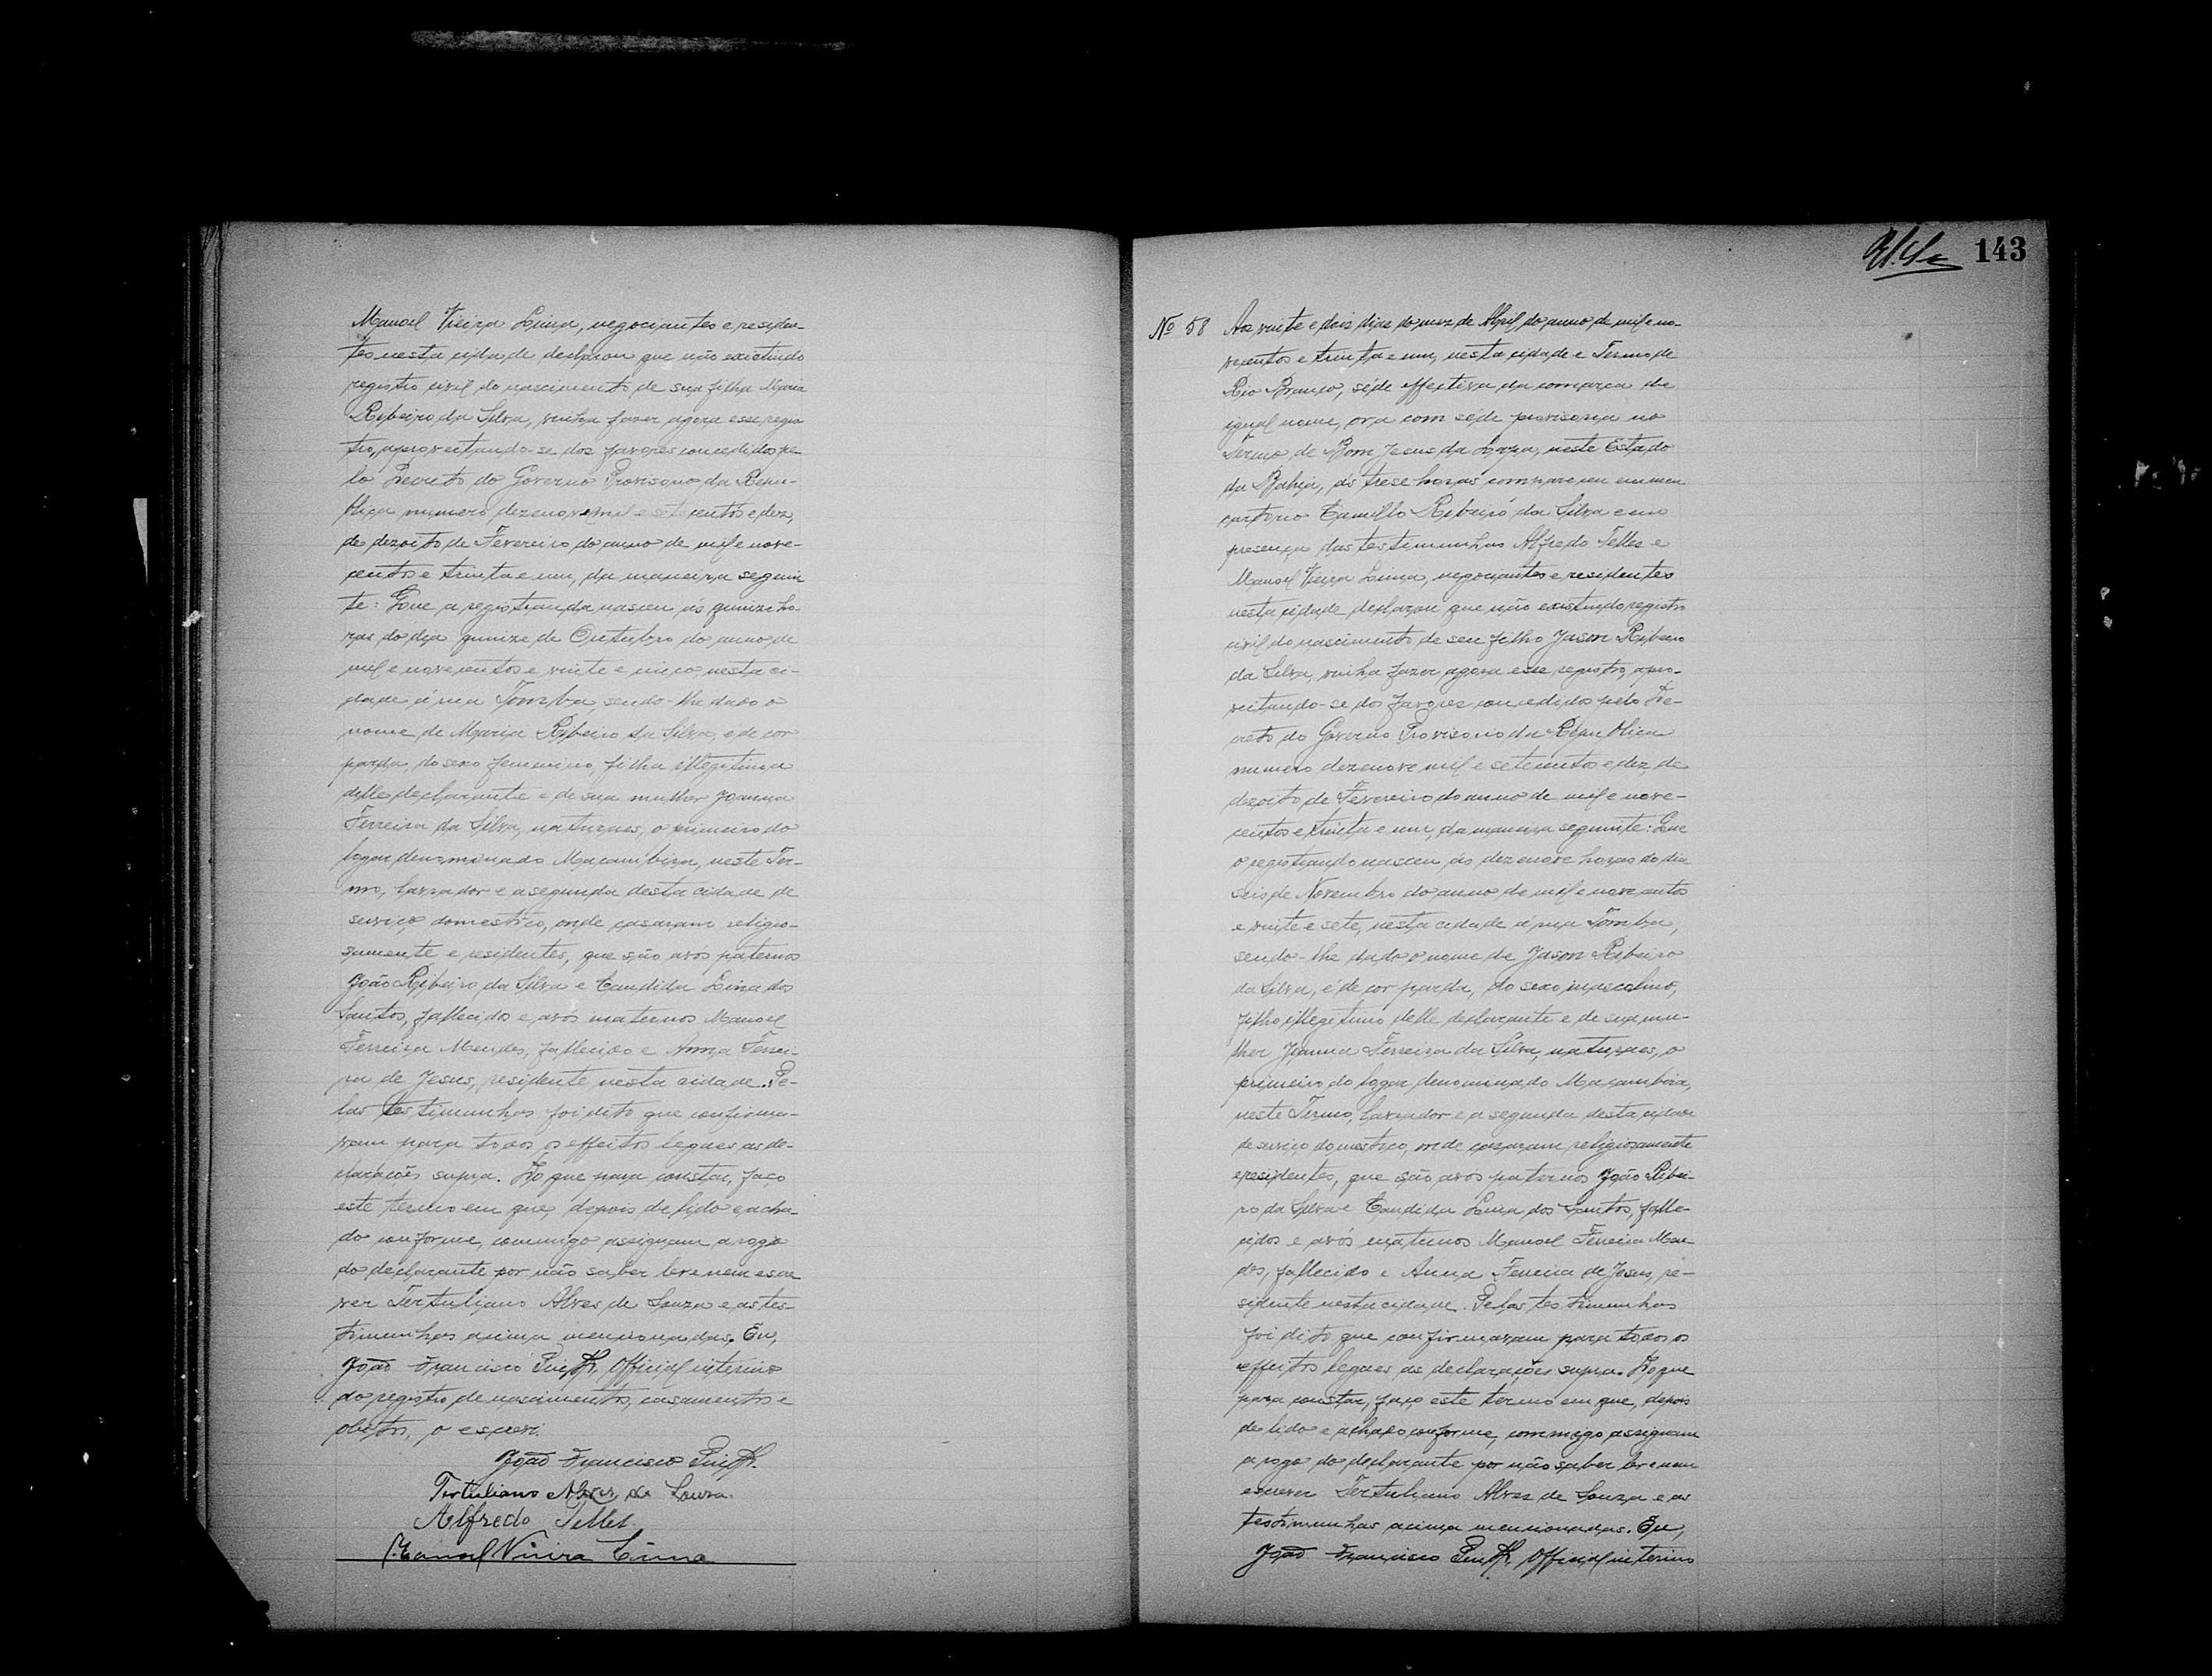 Manoel Vieira Lima, negociantes e residen-
tes nesta cidade declarou que não existindo
registro civil do nascimento de sua filha Maria
Ribeiro da Silva, vinha fazer agora esse regis
tro, aproveitando-se dos favores concedidos pe
lo Decreto do Governo Provisorio da Repu-
blica numero dezenove mil e setecentos e dez,
de dezoito de Fevereiro do anno de mil e nove-
centos e trinta e um, da maneira seguin
te: Que a registranda nasceu ás quinze ho-
ras do dia quinze de Outubro do anno de
mil e novecentos e vinte e cinco nesta ci-
dade á rua Tomba, sendo-lhe dado o
nome de Maria Ribeiro da Silva, é de cor
parda, do sexo femenino, filha illegitima
delle declarante e de sua mulher Joanna
Ferreira da Silva, naturaes, o primeiro do
logar denominado Macambira, neste Ter-
mo, lavrador e a segunda desta cidade de
serviço domestico, onde casaram religio-
samente e residentes, que são avós paternos
João Ribeiro da Silva e Candida Lina dos
Santos, fallecidos e avós maternos Manoel
Ferreira Mendes, fallecido e Anna Ferrei-
ra de Jesus, residente nesta cidade. Pe-
las testimunhas foi dito que confirma-
vam para todos os effeitos legaes as de-
clarações supra. Do que para constar, faço
este termo em que, depois de lido e acha-
do conforme, commigo assignam a rogo
do declarante por não saber ler e nem escre
ver Tertuliano Alves de Souza e as tes-
timunhas acima mencionadas. Eu,
João Francisco Official interino
do registro de nascimentos, casamentos e
obitos, o escrevi.
João Francisco
Tertuliano Alves de Souza.
Alfredo Telles.
Manoel Vieira Lima
143
Nº 58 Aos vinte e dois dias do mez de Abril do anno de mil e no-
vecentos e trinta e um, nesta cidade e Termo de
Rio Branco, séde effectiva da comarca de
igual nome, ora com séde provisoria no
Termo de Bom Jesus da Lapa, neste Estado
da Bahia, ás trese horas compareceu em meu
cartorio Camillo Ribeiro da Silva e em
presença das testimunhas Alfredo Telles e
Manoel Vieira Lima, negociantes e residentes
nesta cidade declarou que não existindo registro
civil do nascimento de seu filho Jason Ribeiro
da Silva, vinha fazer agora esse registro, apro-
veitando-se dos favores concedidos pelo De-
creto do Governo Provisorio da Republica
numero dezenove mil e setecentos e dez, de
dezoito de Fevereiro do anno de mil e nove-
centos e trinta e um, da maneira seguinte: Que
o registrando nasceu ás dezenove horas do dia
seis de Novembro do anno de mil e novecentos
e vinte e sete, nesta cidade á rua Tomba,
sendo-lhe dado o nome de Jason Ribeiro
da Silva, é de cor parda, do sexo masculino,
filho illegitimo delle declarante e de sua mu-
lher Joanna Ferreira da Silva, naturaes, o
primeiro do logar denominado Macambira,
neste Termo, lavrador e a segunda desta cidade
de serviço domestico, onde casaram religiosamente
e residentes, que são avós paternos João Ribei-
ro da Silva e Candida Lina dos Santos, falle-
cidos e avós maternos Manoel Ferreira Men
des, fallecido e Anna Ferreira de Jesus, re-
sidente nesta cidade. Pelas testimunhas
foi dito que confirmavam para todos os
effeitos legaes as declarações supra. Do que
para constar, faço este termo em que, depois
de lido e achado conforme, commigo assignam
a rogo do declarante por não saber ler e nem
escrever Tertuliano Alves de Souza e as
testimunhas acima mencionadas. Eu,
João Francisco Official interino